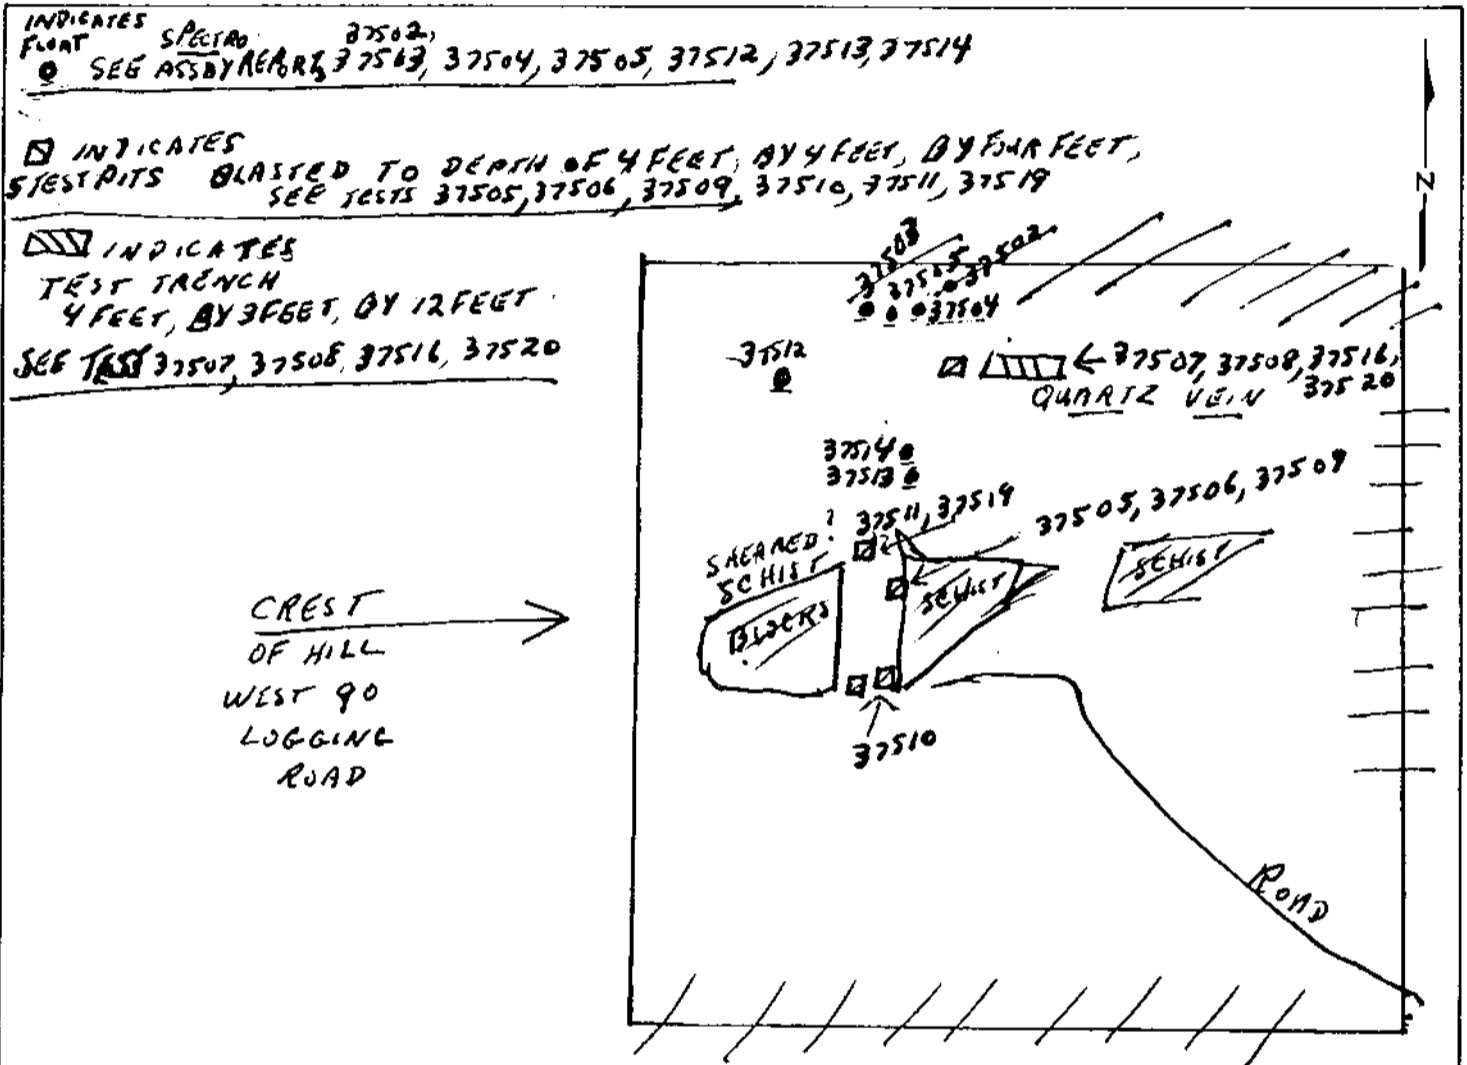 INDICATES
FLOAT
SPECTRO 37502,
SEE ASSAY REPORTS 37503, 37504, 37505, 37512, 37513, 37514
INDICATES
5 TEST PITS BLASTED TO DEPTH OF 4 FEET, BY 4 FEET, BY FOUR FEET,
SEE TESTS 37505, 37506, 37509, 37510, 37511, 37519
INDICATES
TEST TRENCH
4 FEET, BY 3 FEET, BY 12 FEET
SEE TEST 37507, 37508, 37516, 37520
N
37503
37505
37502
37504
37512
37507, 37508, 37516,
37520
QUARTZ VEIN
37514
37513
37511, 37519
37505, 37506, 37509
SHEARED?
SCHIST
BLOCKS
SCHIST
SCHIST
37510
CREST
OF HILL
WEST 90
LOGGING
ROAD
ROAD